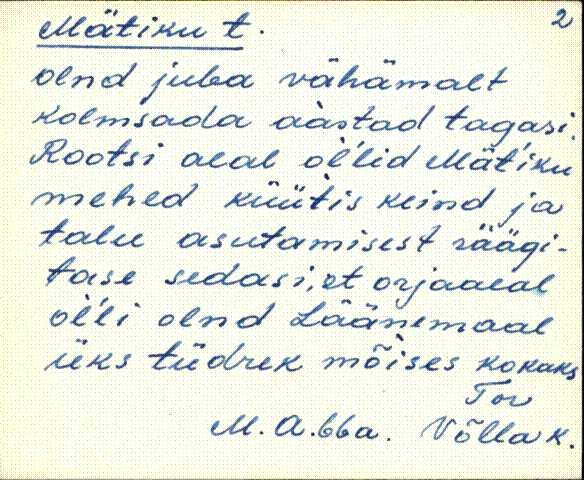 2
Mätiku t.
olnd juba vähämalt
kolmsada aastad tagasi.
Rootsi aeal ol'lid Mät'iku
mehed küütis keind ja
talu asutamisest räägi-
tase sedasi, et orjaaeal
ol'li olnd Läänemaal
üks tüdrek mõises kokaks
Tor
M. Abba. Võlla k.